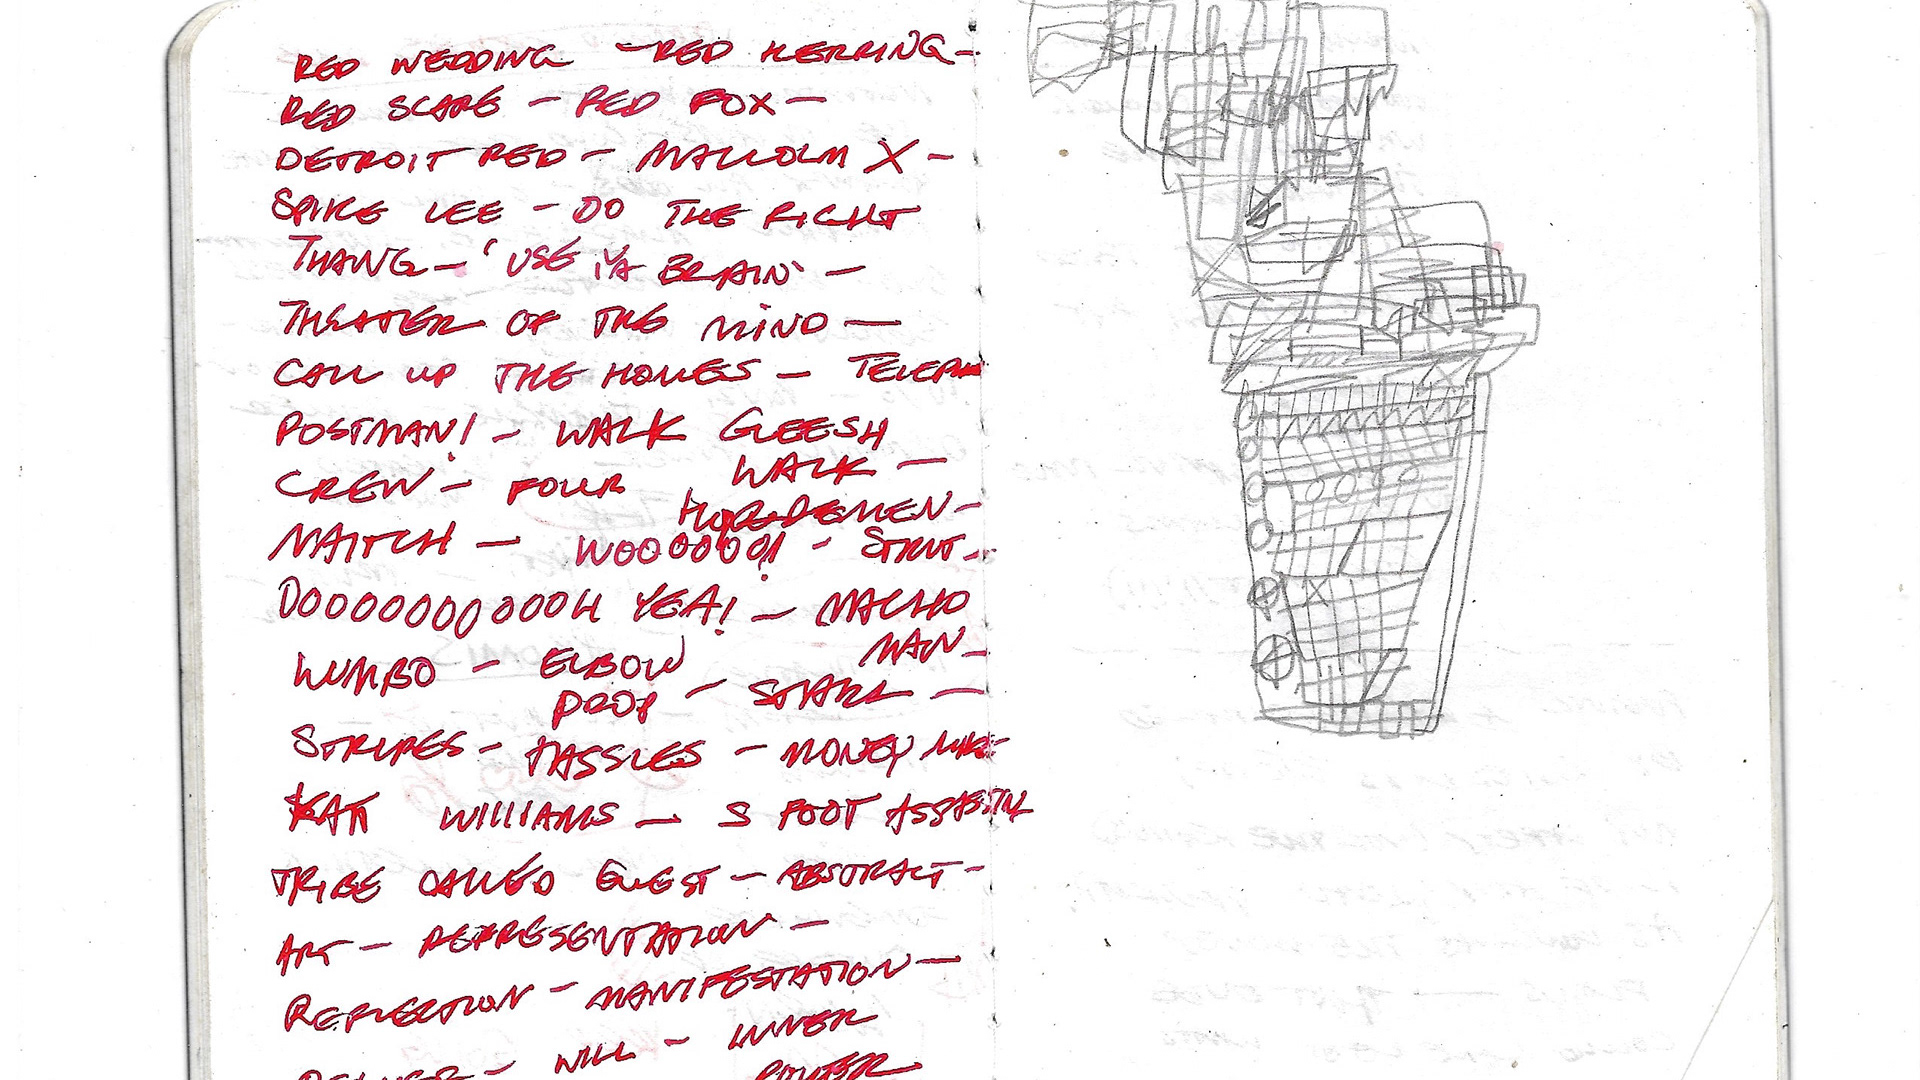 RED WEDDING – RED HERRING –
RED SCARE – RED FOX –
DETROIT RED – MALCOLM X –
SPIKE LEE – DO THE RIGHT
THANG – 'USE YA BRAIN' –
THEATER OF THE MIND –
CALL UP THE HOMES –
POSTMAN! – WALK GEESH
WALK –
CREW – FOUR
HORSDEMEN –
MATCH – WOOOOOO! – STRUT –
OOOOOOOOOOOH YEA! – MACHO
MAN –
LUMBO – ELBOW
DROP – STARS –
STRIPES – TASSLES – MONEY MIKE
KAT WILLIAMS – 5 FOOT ASSASSIN
TRIBE CALLED QUEST – ABSTRACT –
ART – REPRESENTATION –
REFLECTION – MANIFESTATION –
WILL – INNER
POWER